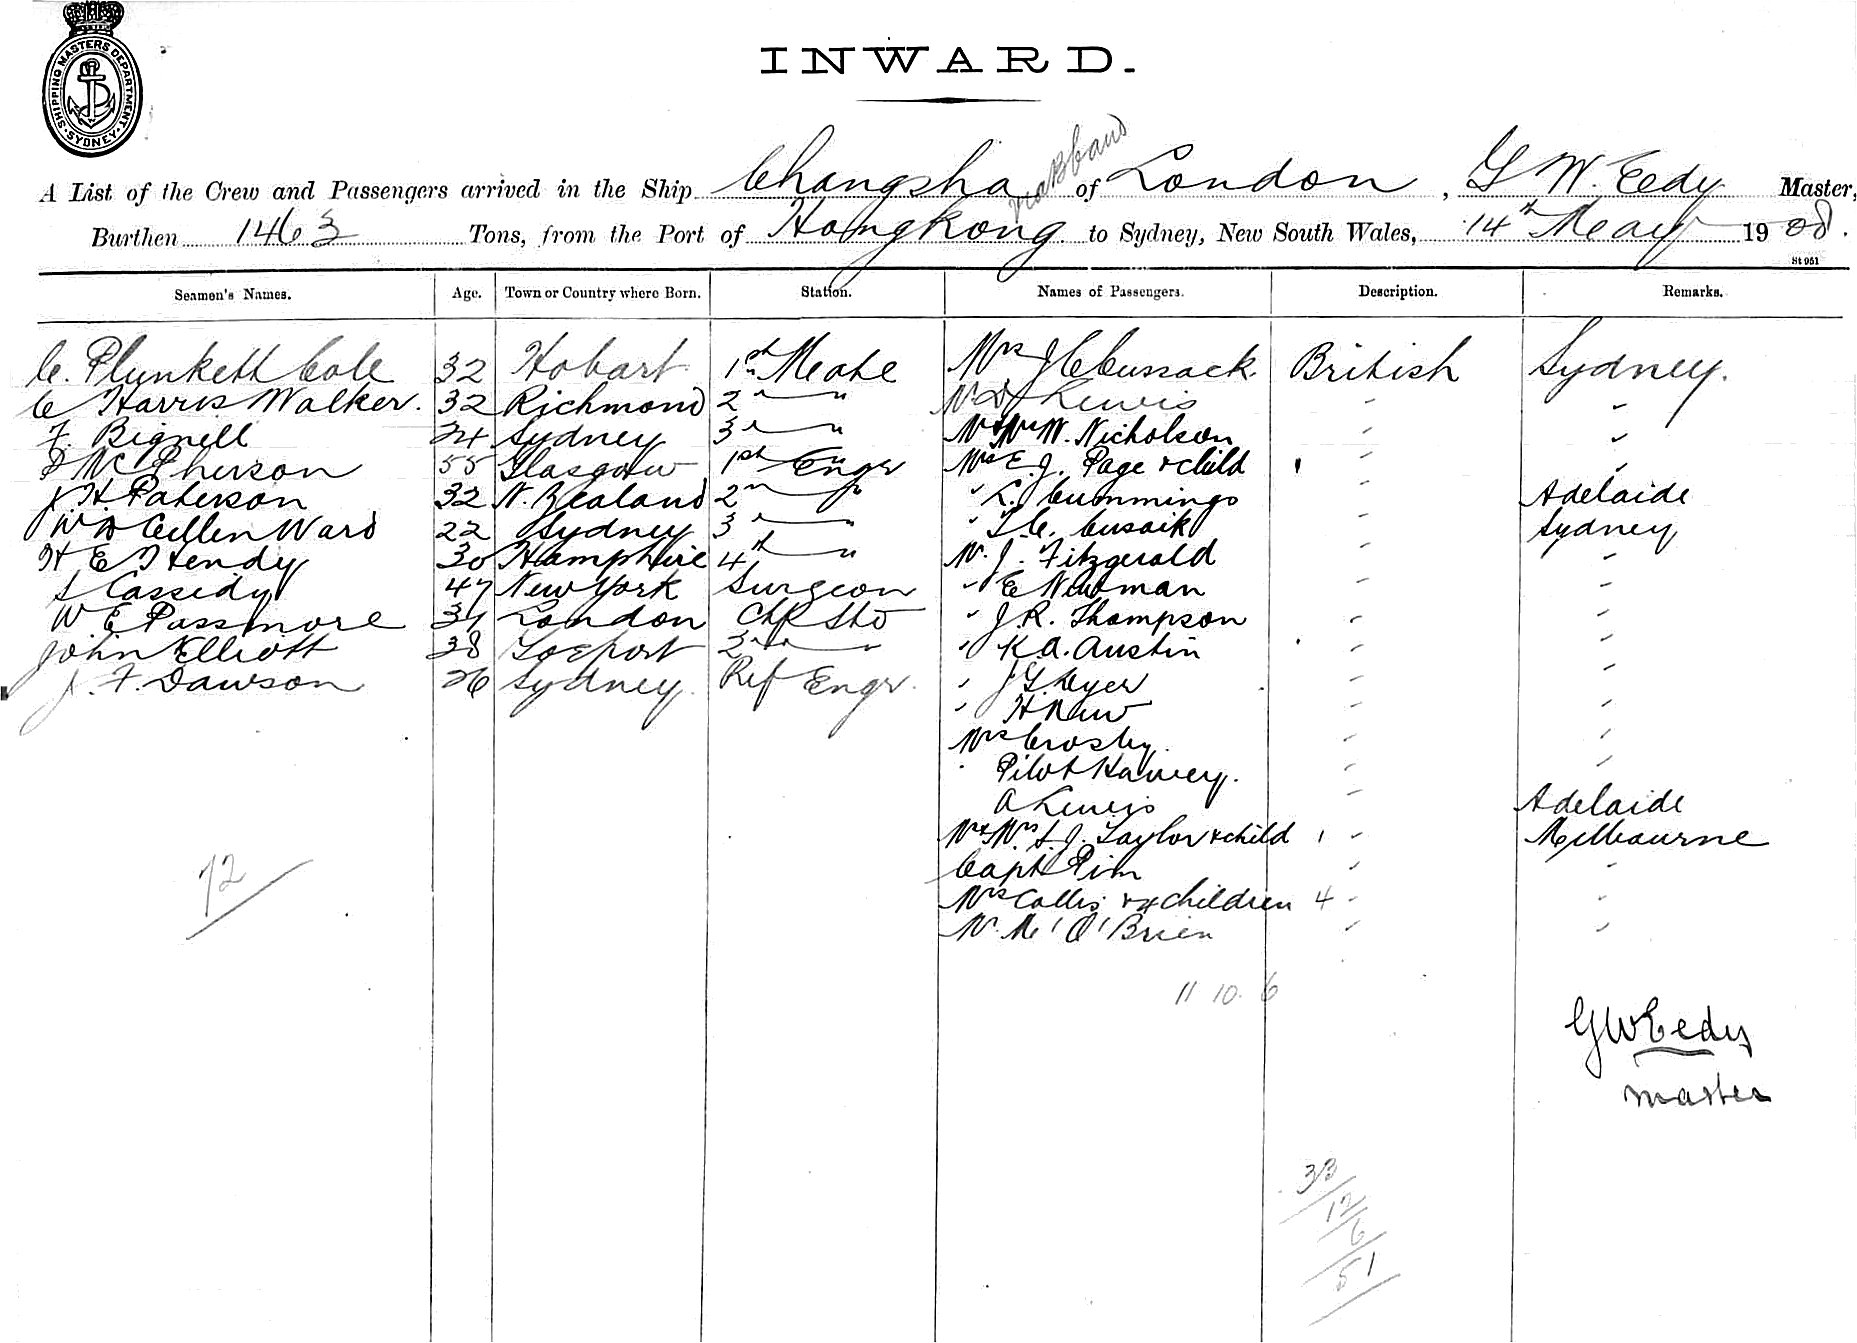 SHIPPING MASTERS DEPARTMENT
SYDNEY
INWARD.
A List of the Crew and Passengers arrived in the Ship Changsha of London, G W. Eedy Master,
Burthen 1463 Tons, from the Port of Hongkong to Sydney, New South Wales, 14th May 1908.
St 951
Seamen's Names. Age. Town or Country where Born. Station. Names of Passengers. Description. Remarks.
C. Plunkett Cole 32 Hobart 1st Mate Mrs J C Cussack British Sydney.
C Harris Walker. 32 Richmond 2nd " Lewis " "
F. Bignell 24 Sydney 3rd " Mr & Mrs W. Nicholson " "
McPherson 55 Glasgow 1st Engr Mrs E. J. Page & child 1 " "
J. H. Paterson 32 N. Zealand 2nd " " L. Cummings " Adelaide
Ward 22 Sydney 3rd " " T. C. Cusack " Sydney
H E Hendy 30 Hampshire 4th " Mr. J. Fitzgerald " "
Cassidy 47 New York Surgeon " E Newman " "
W E Passmore London Ch Std " J. R. Thompson " "
John Elliott 38 Gosport 2nd " " K. A. Austin " "
J. F. Dawson 26 Sydney. Ref Engr. " " "
" H New " "
Mrs Crosby. " "
" Pilot Harvey. " "
A Lewis " Adelaide
Mr & Mrs S. J. Taylor & child 1 " Melbourne
Capt Pim " "
Mrs Collis & 4 children 4 " "
Mr. Mc O'Brien " "
72
11 10. 6
G W Eedy
master
33
12
6
51